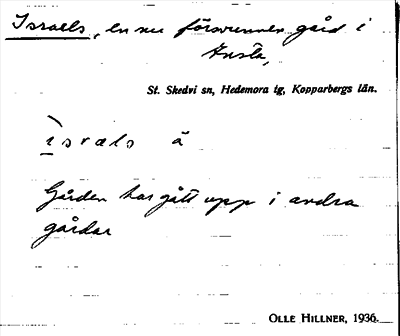 Israels, en nu försvunnen gård i
Ansta,
St. Skedvi sn, Hedemora tg, Kopparbergs län.
ìsrals å
Gården har gått upp i andra
gårdar
OLLE HILLNER, 1936.